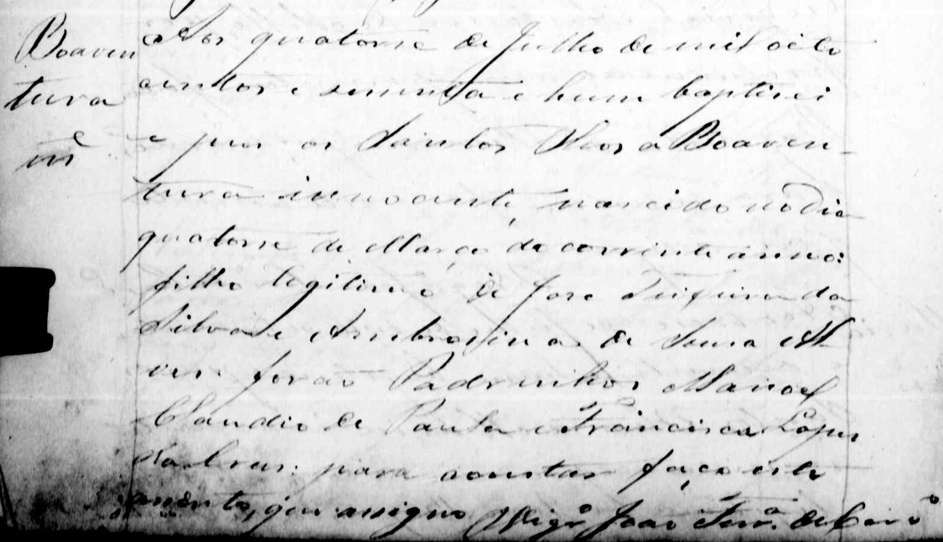 Boaven
tura
Aos quatorse de Julho de mil oito
centos e secenta e hum baptisei
e puz os Santos Oleos a Boaven-
tura innocente, nascido no dia
quatorse de Março do corrente anno:
filho legitimo de Jose Teixeira da
Silva e Ambrosina de Sousa Al
ves: forão Padrinhos Manoel
Claudio de Paula e Francisca Lopes
da Crus: para constar faço este
que assigno Vigrº João